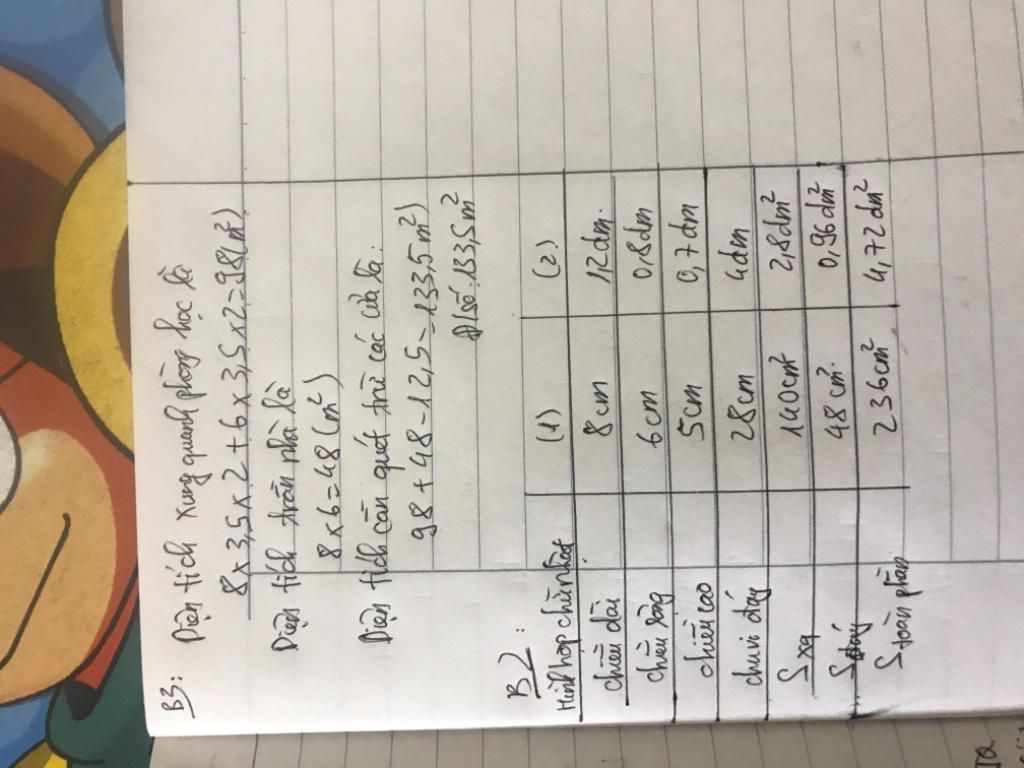 B3: Diện tích xung quanh phòng học là
8 x 3,5 x 2 + 6 x 3,5 x 2 = 98 (m²)
Diện tích trần nhà là
8 x 6 = 48 (m²)
Diện tích cần quét trừ các cửa là:
98 + 48 - 12,5 = 133,5 m²)
Đ/số: 133,5 m²
B2:
Hình hộp chữ nhật (1) (2)
chiều dài 8cm 1,2dm.
chiều rộng 6cm 0,8dm
chiều cao 5cm 0,7dm
chu vi đáy 28cm 4dm
Sxq 140cm² 2,8dm²
Sđáy 48cm². 0,96dm²
Stoàn phần 236cm² 4,72dm²